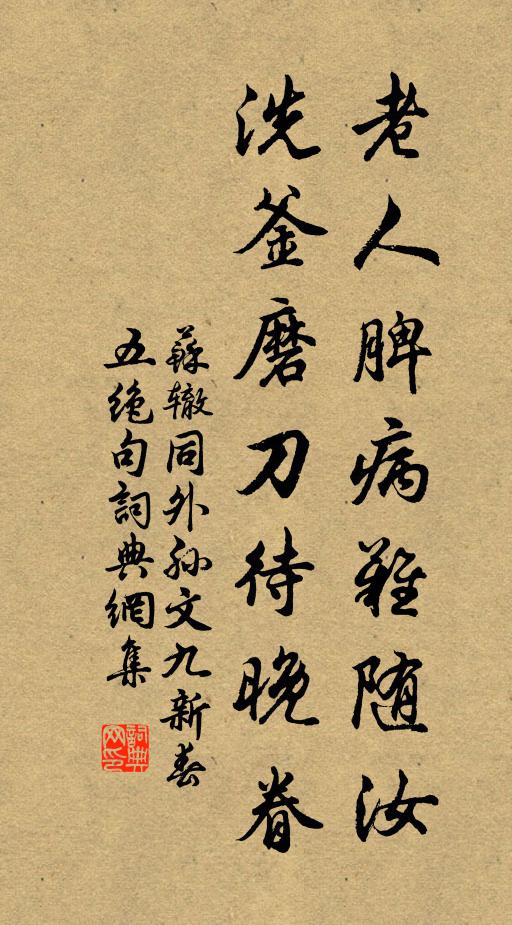 老人脾病難随汝
洗釜磨刀待晚眷
蘇辙同外孙文九新春
五绝句詞典網集
詞典网印